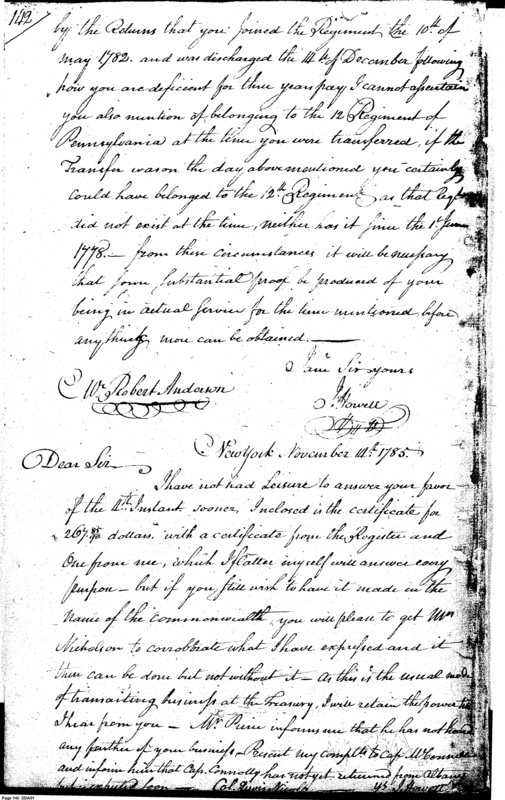 142
by the Returns that you joined the Regiment the 10th of
May 1782. and was discharged the 14th of December following
how you are deficient for three years pay I cannot ascertain
you also mention of belonging to the 12 Regiment of
Pennsylvania at the time you were transferred, if the
Transfer was on the day abovementioned you certainly
could have belonged to the 12th Regiment as that Regt
did not exist at the time, neither has it since the 1st June
1778.— from these circumstances it will be necessary
that some substantial proof be produced of your
being in actual Service for the time mentioned before
anything more can be obtained.—
I am Sir yours
Mr. Robert Anderson
J. Howell
New York November 14th 1785
Dear Sir
I have not had Leisure to answer your favor
of the 4th Instant sooner, Inclosed is the certificate for
267. dollars. with a certificate from the Register and
One from me, which I flatter myself will answer every
purpose — but if you still wish to have it made in the
Name of the Commonwealth, you will please to get Mr
Nicholson to corrobtrate what I have expressed and it
then can be done but not without it — As this is the usual mode
of transacting business at the Treasury, I will retain the power
I hear from you — Mr informs me that he has not heard
any farther of your business — Present my complts to Cap. McConnell
and inform him that Cap. Connolly has not yet returned from Albany
but is expected soon — Col.
Page 140 DDAR1